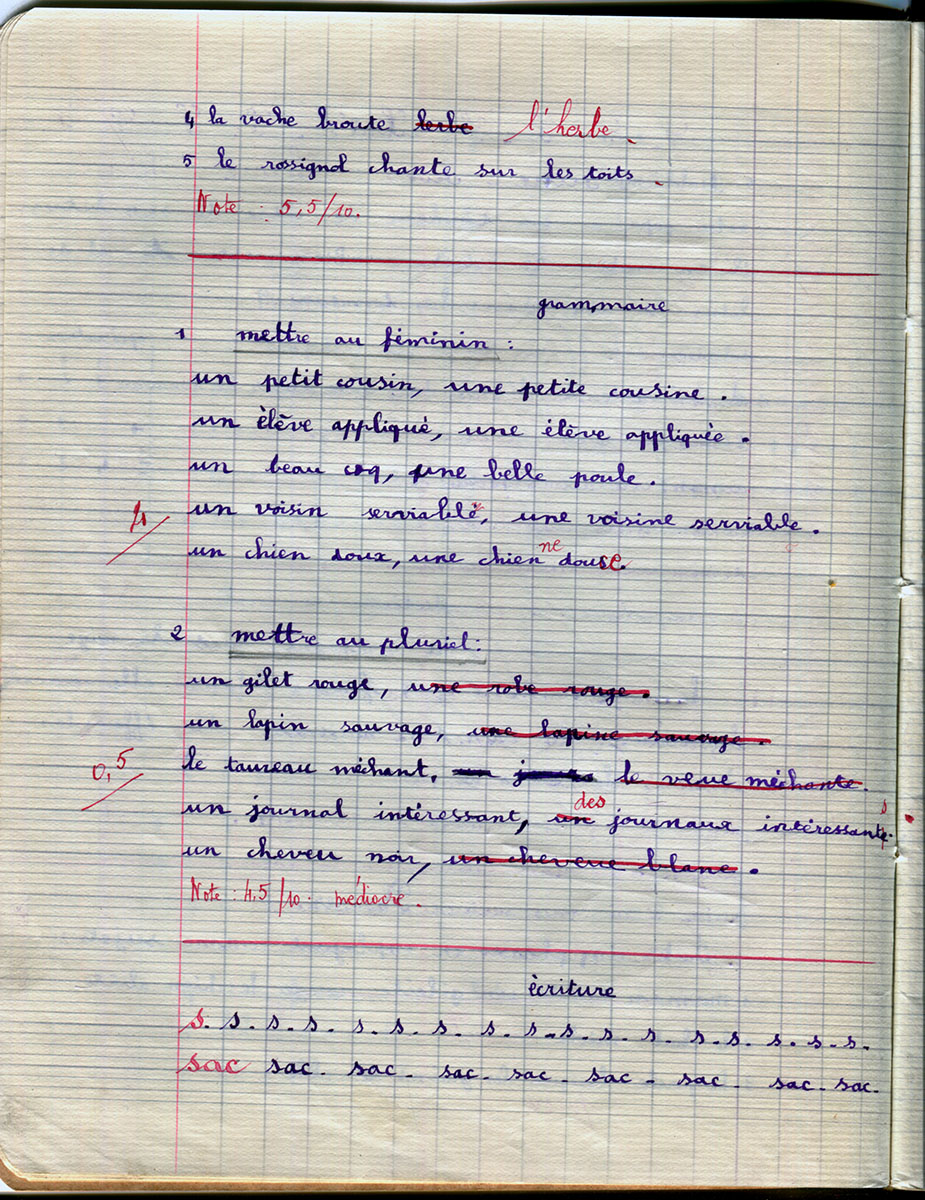 4 la vache broute lerbe l'herbe.
5 le rossignol chante sur les toits.
Note : 5,5/10.
grammaire
1 mettre au féminin :
un petit cousin, une petite cousine.
un élève appliqué, une élève appliquée.
un beau coq, une belle poule.
4 un voisin serviable, une voisine serviable.
un chien doux, une chienne douse.
2 mettre au pluriel :
un gilet rouge, une robe rouge.
un lapin sauvage, une lapine sauvage.
0,5 le taureau méchant, le veue méchante.
un journal intéressant, un des journaux intéressants.
un cheveu noir, un cheveue blanc.
Note : 4,5/10. médiocre.
écriture
s. s. s. s. s. s. s. s. s. s. s. s. s. s. s. s. s.
sac sac. sac. sac. sac. sac. sac. sac. sac.